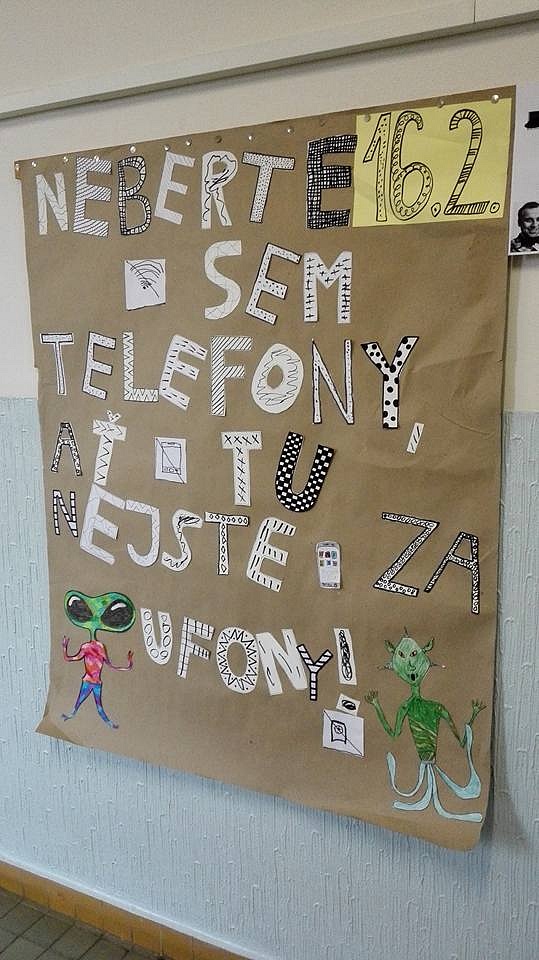 NEBERTE 16.2.
SEM
TELEFONY,
AŤ TU
NEJSTE ZA
UFONY!